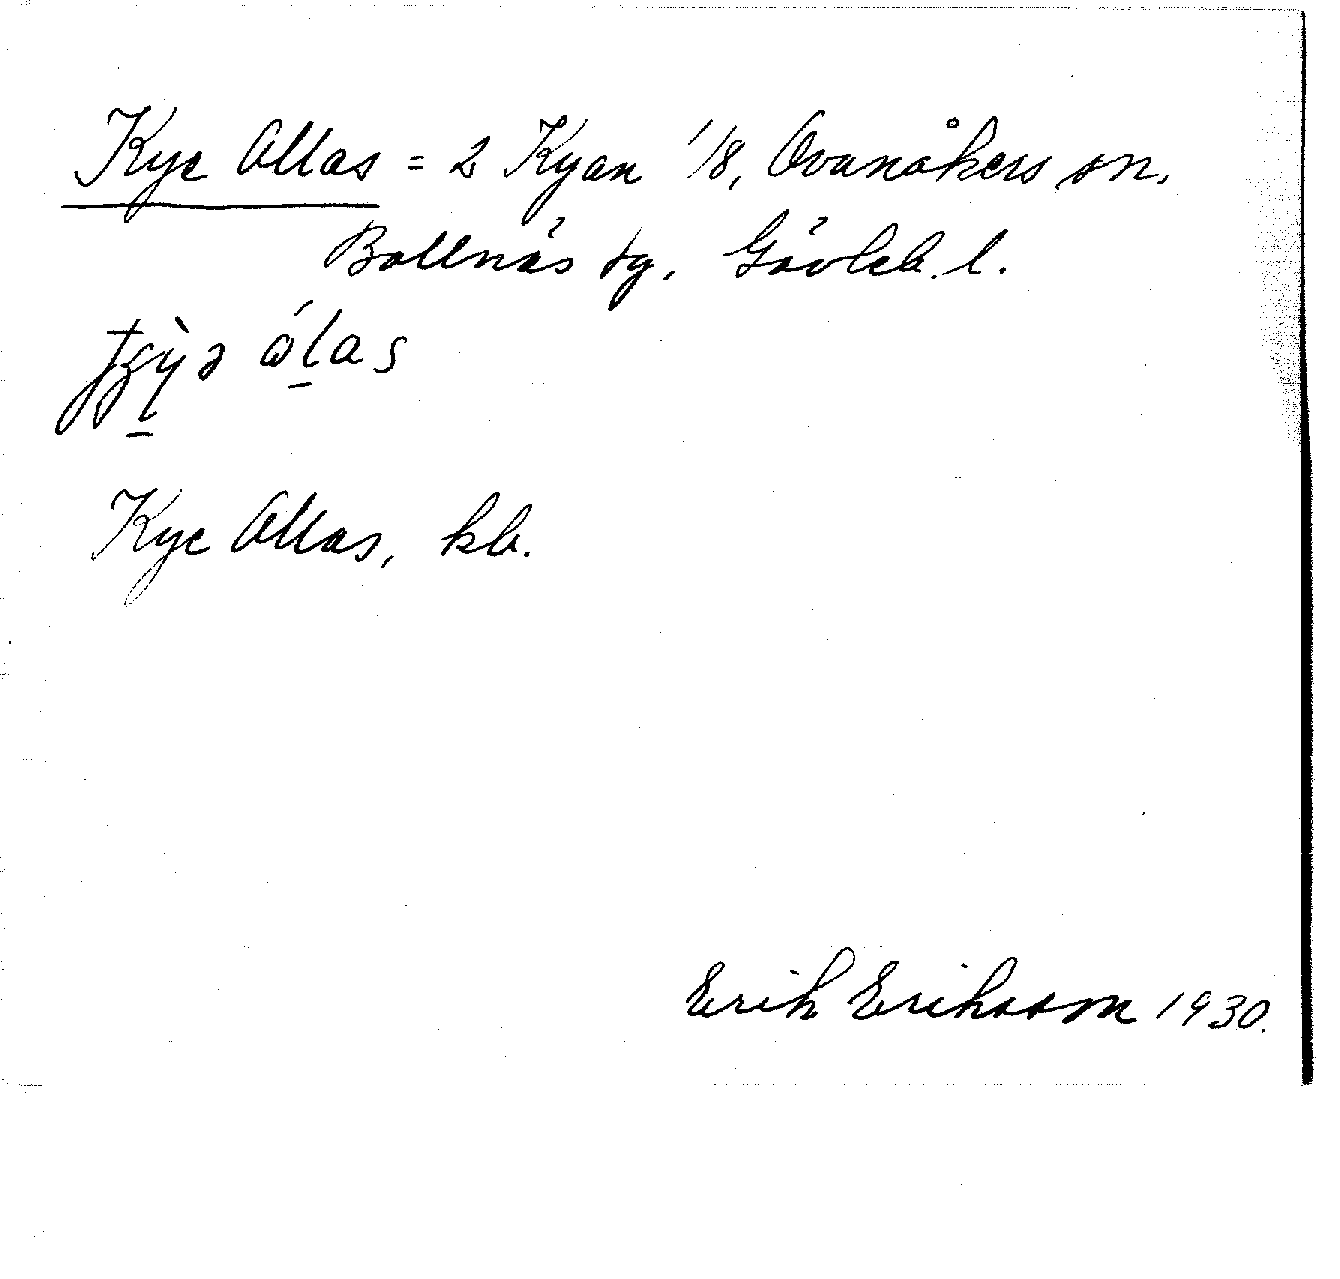 Kye Ollas = 2 Kyan 1/8, Ovanåkers sn.
Bollnäs tg. Gävleb. l.
ólas
Kye Ollas, kb.
Erik Eriksson 1930.